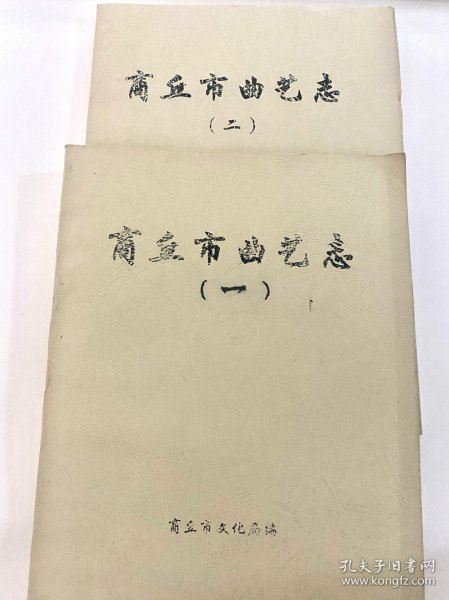 商丘市曲艺志
(二)
商丘市曲艺志
(一)
商丘市文化局编
孔夫子旧书网
www.kongfz.com